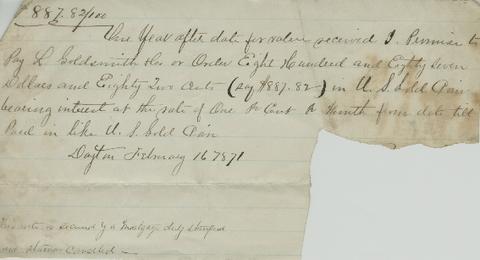 887.82/100
One Year after date for value received I Promise to
Pay L Goldsmith &co or Order Eight Hundred and Eighty Seven
Dollars and Eighty Two Cents (say $887.82-) in U.S. Gold Coin
bearing interest at the rate of One Pr Cent Pr Month from date till
Paid in like U.S. Gold Coin
Dayton February 16 1871
This note is secured by a Mortgage duly Stamped
and Stamps Cancelled